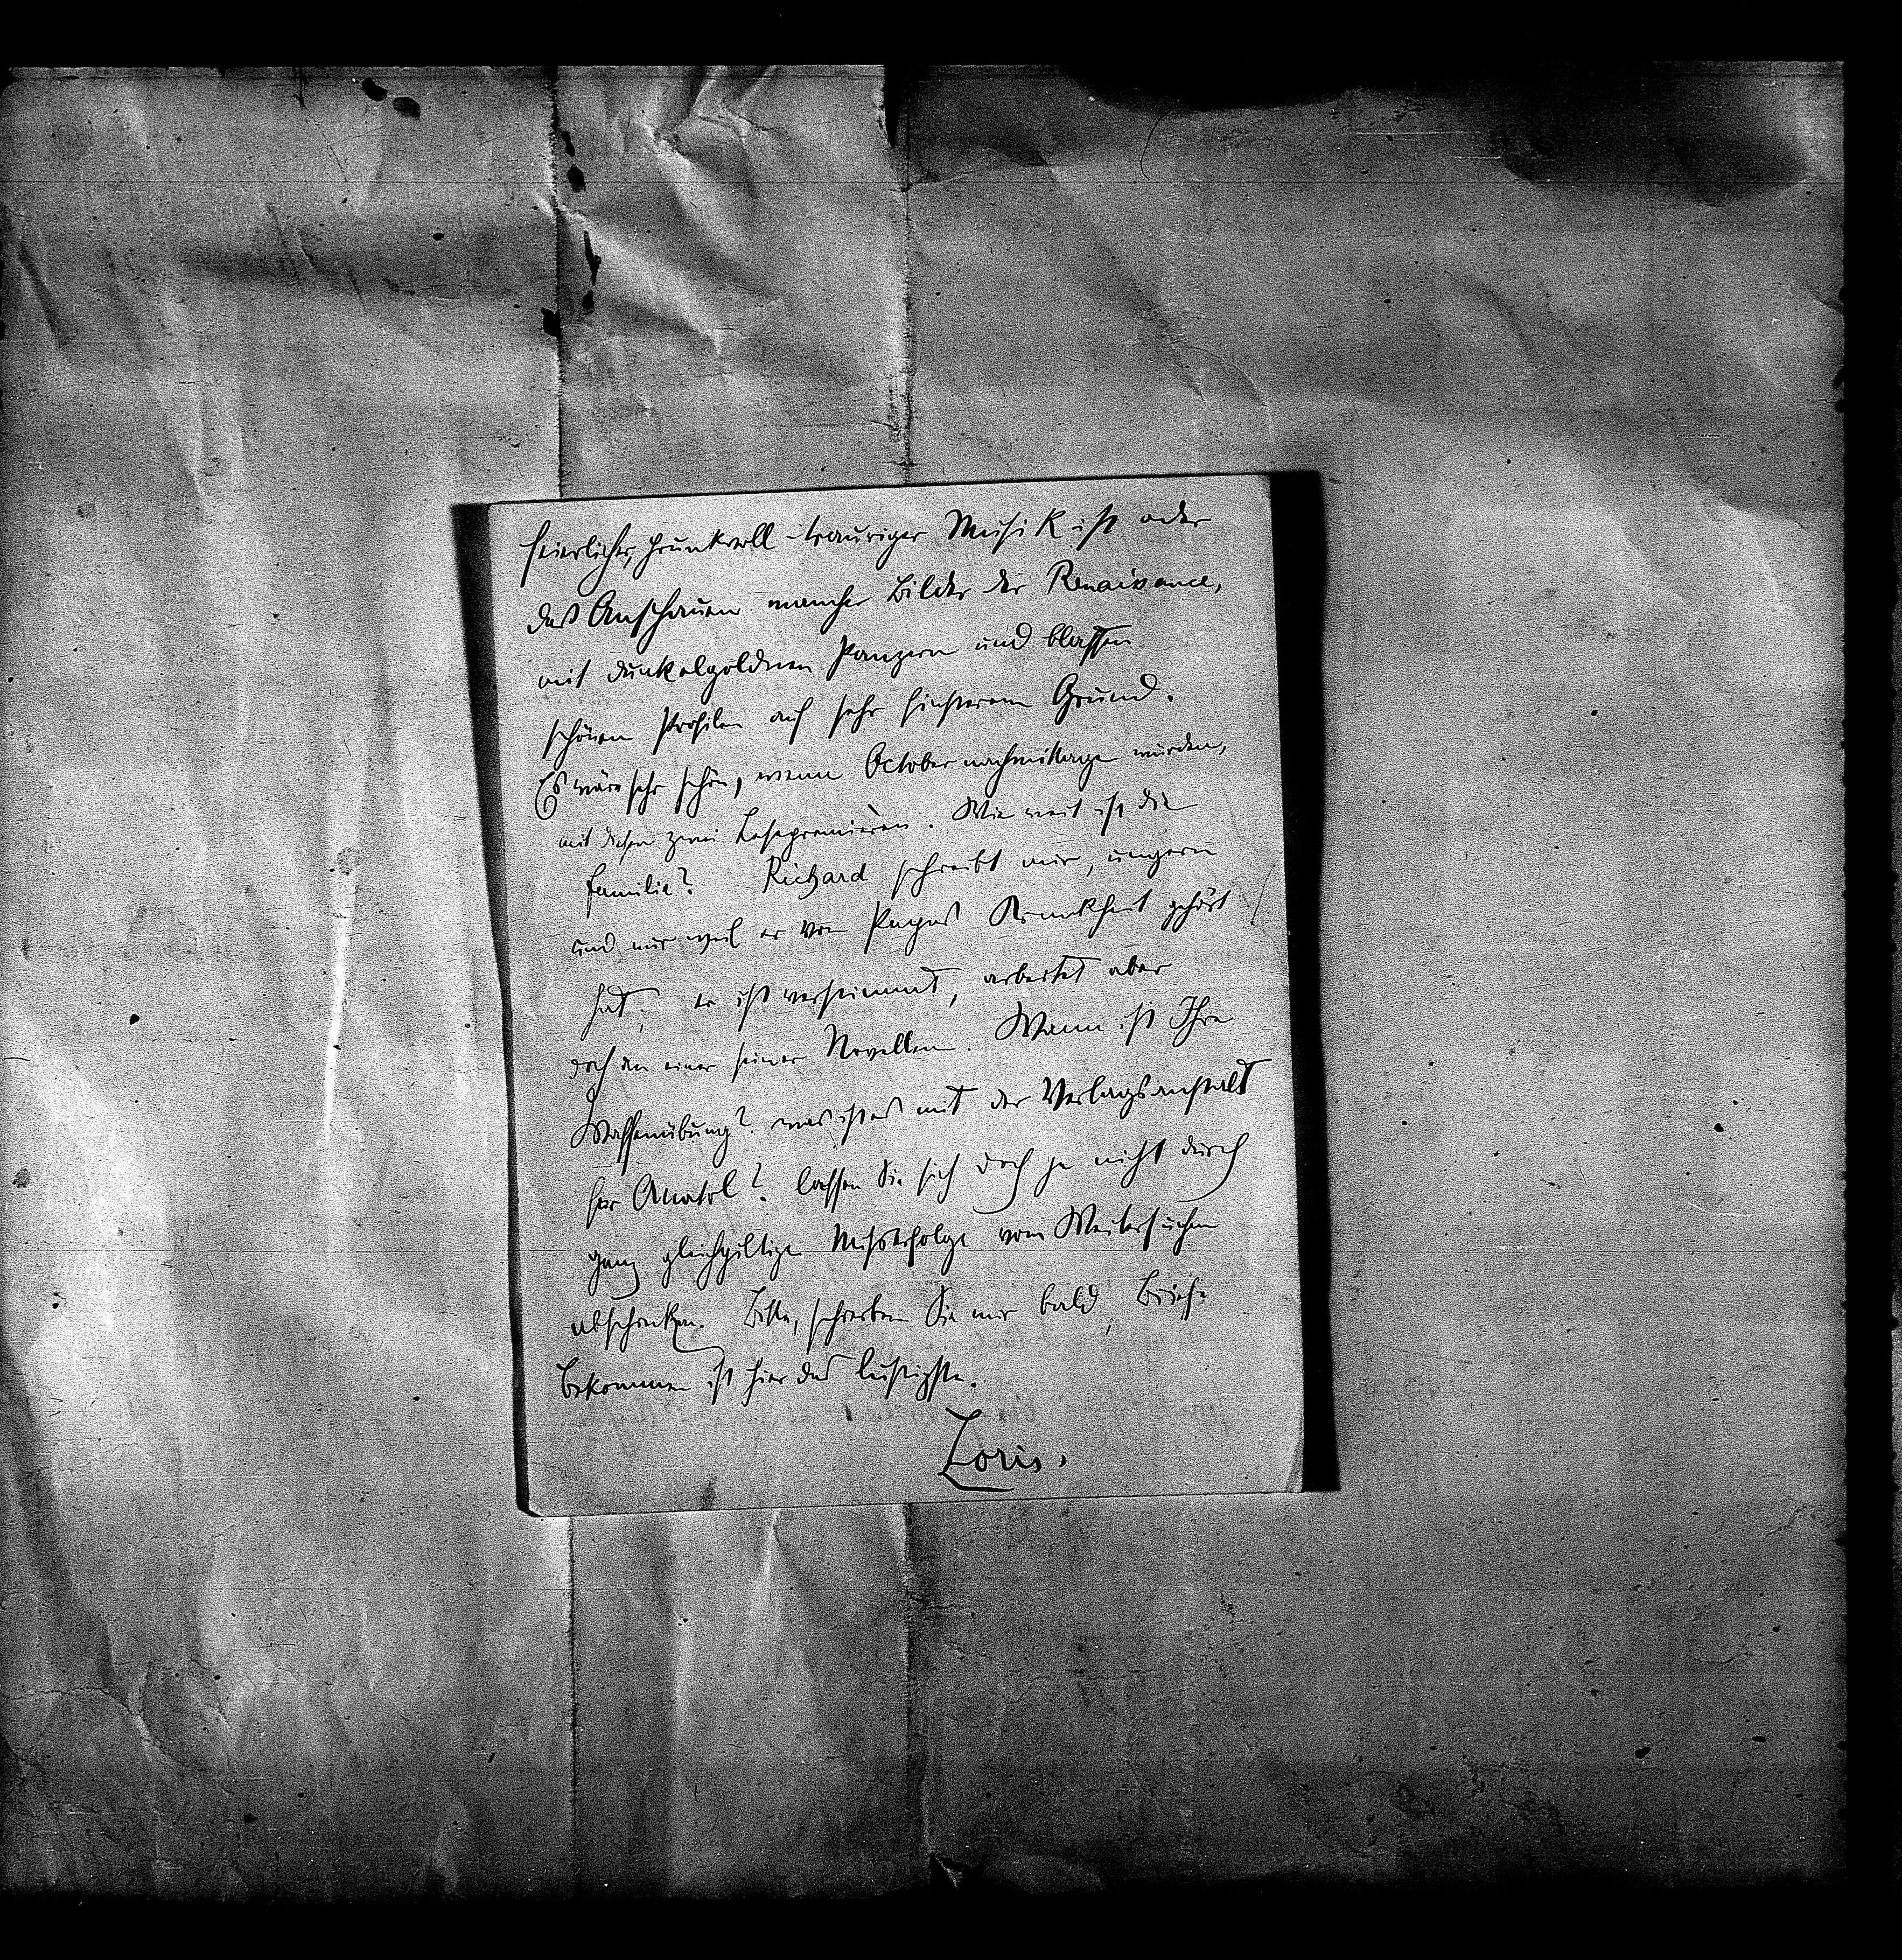 feierlicher, prunkvoll-trauriger Musik ist oder
das Anschauen mancher Bilder der Renaissance,
mit dunkelgoldnen Panzern und blassen
schönen Profilen auf sehr finsterem Grund.
Es wäre sehr schön, wenn Octobernachmittage würden,
mit diesen zwei Lesepremièren. Wie weit ist die
Familie? Richard schreibt mir, ungern
und nur weil er von Papas Krankheit gehört
hat; er ist verstimmt, arbeitet aber
doch an einer seiner Novellen. Wann ist Ihre
Waffenübung? was ist es mit der Verlagsanstalt
für Anatol? lassen Sie sich doch ja nicht durch
ganz gleichgiltige Misserfolge vom Weitersuchen
abschrecken. Bitte, schreiben Sie mir bald, Briefe
bekommen ist hier das lustigste.
Loris.